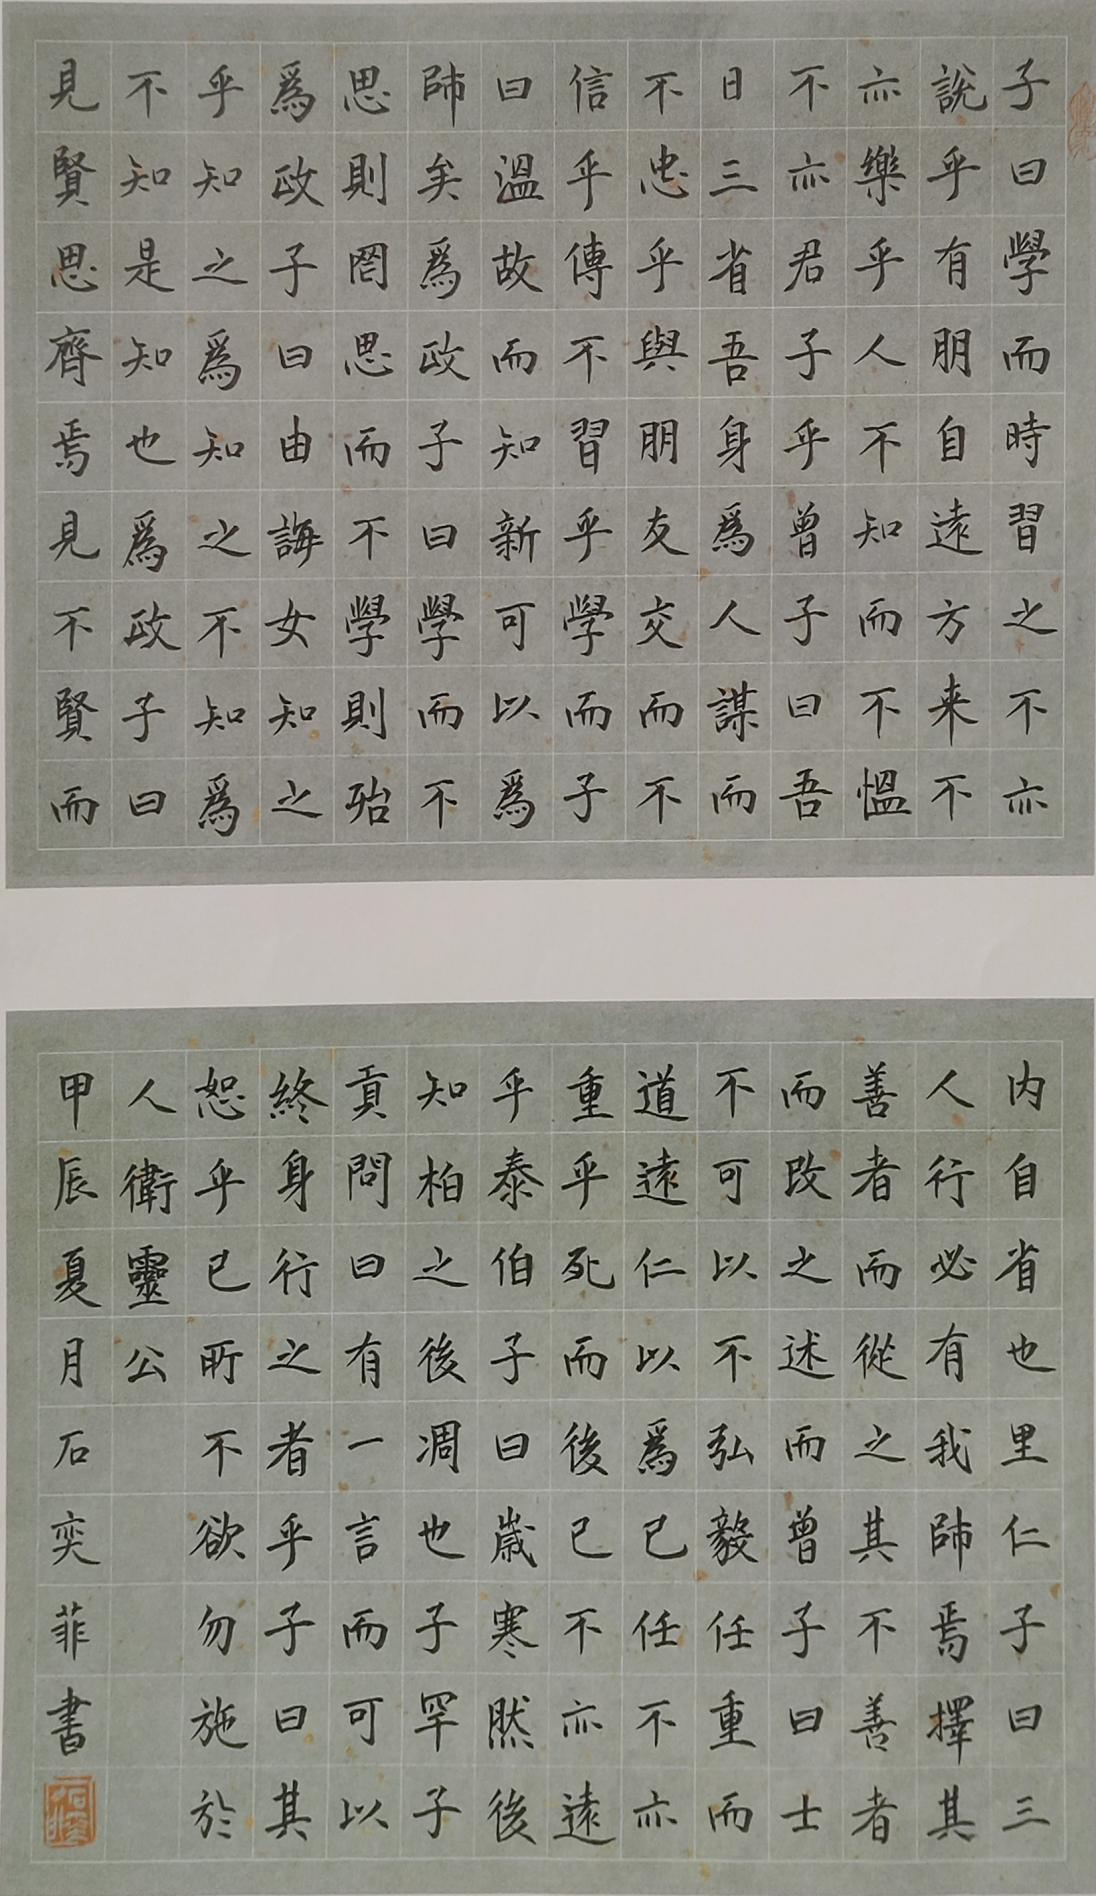 子曰學而時習之不亦
說乎有朋自遠方来不
亦樂乎人不知而不愠
不亦君子乎曾子曰吾
日三省吾身為人謀而
不忠乎與朋友交而不
信乎傳不習乎學而子
曰溫故而知新可以為
師矣為政子曰學而不
思則罔思而不學則殆
為政子曰由誨女知之
乎知之為知之不知為
不知是知也為政子曰
見賢思齊焉見不賢而
内自省也里仁子曰三
人行必有我師焉擇其
善者而從之其不善者
而改之述而曾子曰士
不可以不弘毅任重而
道遠仁以為已任不亦
重乎死而後已不亦遠
乎泰伯子曰歲寒然後
知柏之後凋也子罕子
貢問曰有一言而可以
終身行之者乎子曰其
恕乎已所不欲勿施於
人衛靈公
甲辰夏月石奕菲書